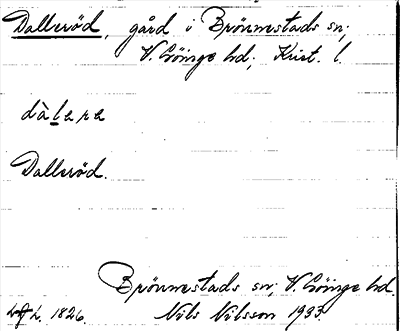 Dallеröd, gård i Brönnestads sn;
V. Göinge hd; Krist. l.
dàlere
Dalleröd.
Brönnestads sn; V. Göinge hd.
L. 1826. Nils Nilsson 1933.